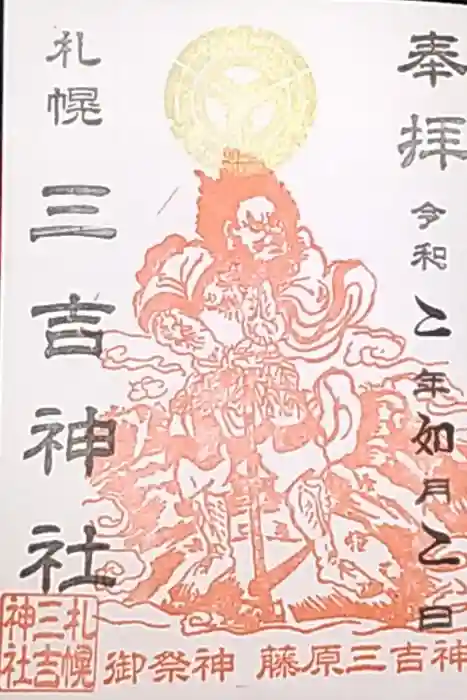 奉拝
令和二年如月二日
札幌
三吉神社
札幌
三吉
神社
御祭神 藤原三吉神